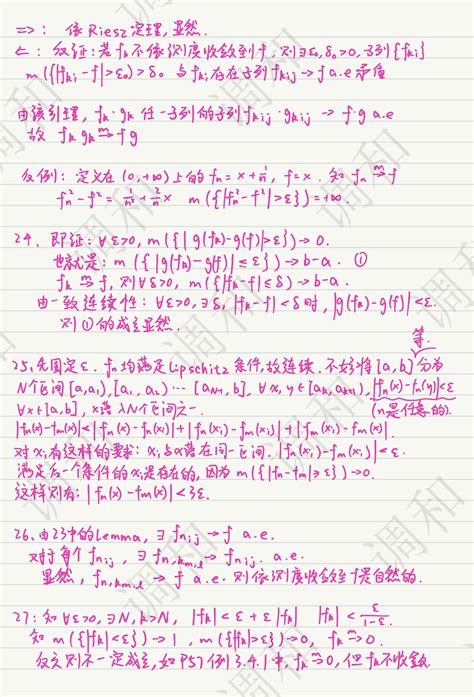 =>: 依Riesz定理,显然.
<=: 反证:若fₖ不依测度收敛到f,则∃ε₀,δ₀>0,子列{fₖᵢ}
m({|fₖᵢ-f|>ε₀})>δ₀ 与fₖᵢ存在子列fₖᵢⱼ→f a.e矛盾
由该引理, fₖ·gₖ任一子列的子列fₖᵢⱼ·gₖᵢⱼ → f·g a.e
故 fₖgₖ →ᵐ fg
反例: 定义在(0,+∞)上的fₙ=x+1/n, f=x. 知fₙ→ᵐf
fₙ²-f²=1/n²+2/n x m({|fₙ²-f²|>ε})=+∞.
24、即证:∀ε>0, m({|g(fₖ)-g(f)|>ε})→0.
也就是: m({|g(fₖ)-g(f)|≤ε})→b-a. ①
fₖ→ᵐf, 则∀δ>0, m({|fₖ-f|≤δ})→b-a.
由一致连续性: ∀ε>0,∃δ,|fₖ-f|<δ时,|g(fₖ)-g(f)|<ε.
则①的成立显然.
等.
25、先固定ε. fₙ均满足Lipschitz条件,故连续. 不妨将[a,b]分为
N个区间[a,a₁),[a₁,a₂)…[aₙ₋₁,b], ∀x,y∈[aₖ,aₖ₊₁),|fₙ(x)-fₙ(y)|<ε
∀x∈[a,b], x落入N个区间之一. (n是任意的.)
|fₙ(x)-fₘ(x)|<|fₙ(x)-fₙ(xᵢ)|+|fₙ(xᵢ)-fₘ(xᵢ)|+|fₘ(xᵢ)-fₘ(x)|.
对xᵢ有这样的要求: xᵢ与x落在同一区间. |fₙ(xᵢ)-fₘ(xᵢ)|<ε.
满足后一个条件的xᵢ是存在的,因为m({|fₙ-fₘ|≥ε})→0.
这样则有: |fₙ(x)-fₘ(x)|<3ε.
26、由23中的Lemma, ∃fₙᵢⱼ→f a.e.
又对每个fₙᵢⱼ, ∃fₙᵢⱼ a.e.
显然, → f a.e. 则依测度收敛到f是自然的.
27: 知∀ε>0,∃N,k>N, |fₖ|<ε+ε|fₖ| |fₖ|<ε/(1-ε).
知 m({|fₖ|<ε})→1, m({|fₖ|>ε})→0, fₖ→ᵐ0.
反之则不一定成立,如P57例3.4.1中, fₖ→ᵐ0,但fₖ不收敛.
调和
调和
调和
调和
调和
调和